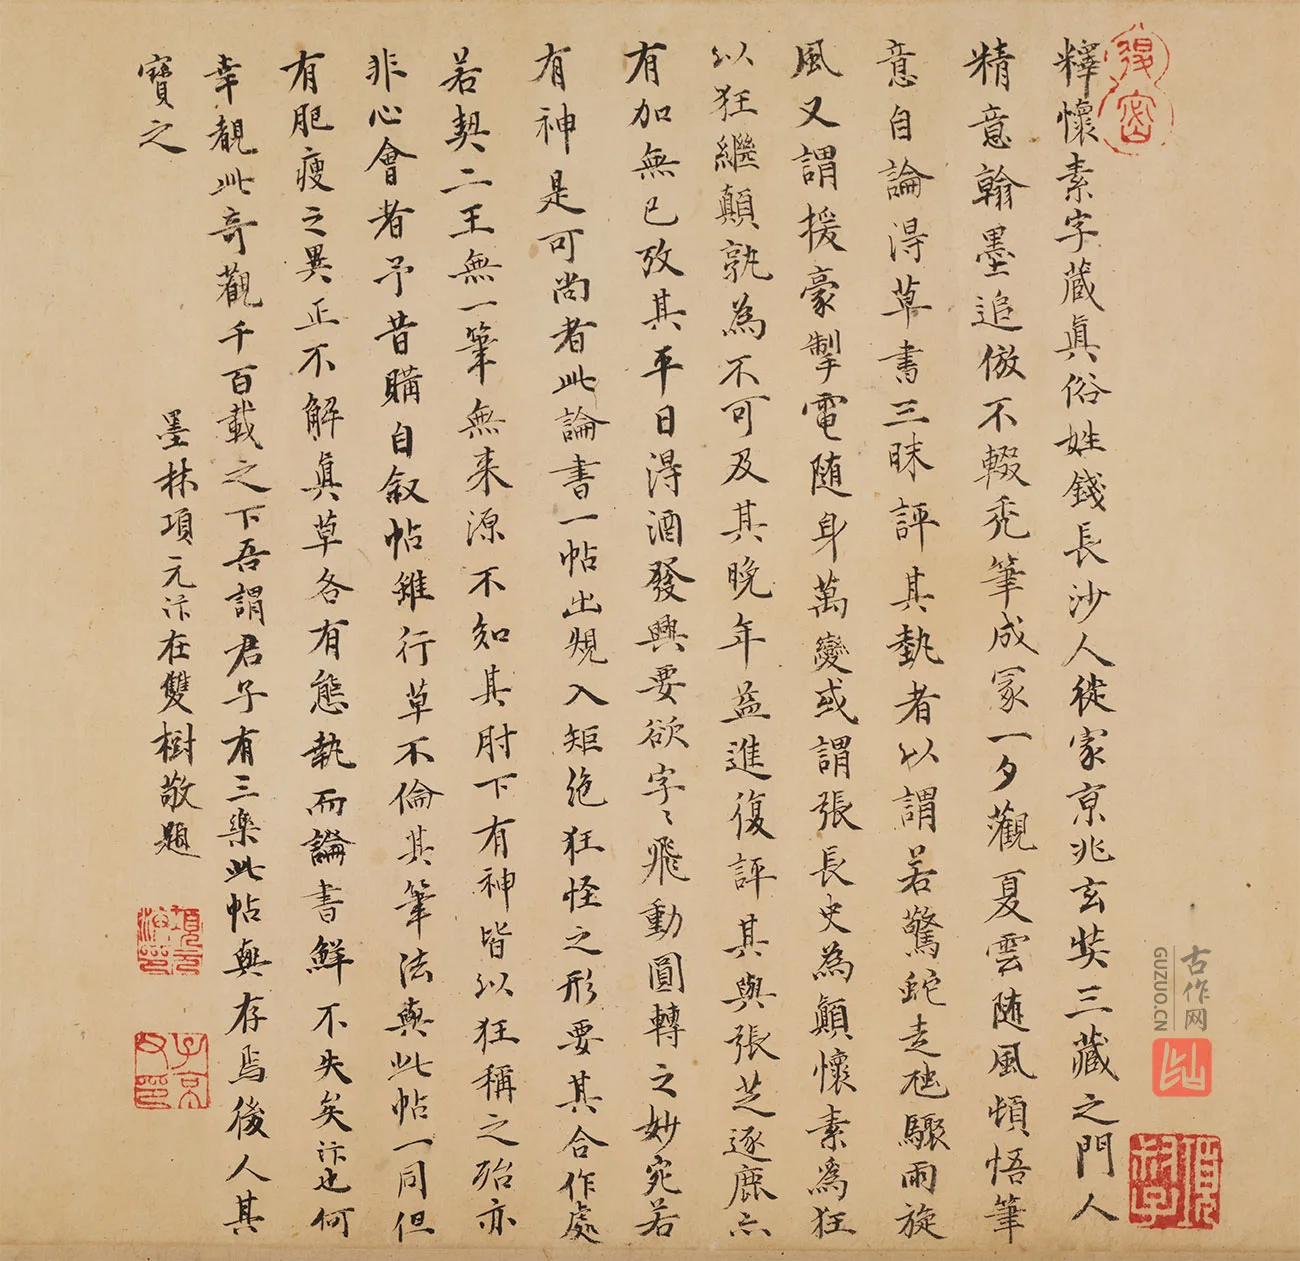 釋懷素字藏真俗姓錢長沙人徙家京兆玄奘三藏之門人
精意翰墨追倣不輟禿筆成冢一夕觀夏雲隨風頓悟筆
意自論得草書三昧評其藝者以謂若驚蛇走虺驟雨旋
風又謂援豪掣電隨身萬變或謂張長史為顛懷素為狂
以狂繼顛孰為不可及其晚年益進復評其與張芝逐鹿亦
有加無已攷其平日得酒發興要欲字〻飛動圓轉之妙宛若
有神是可尚者此論書一帖出規入矩絕狂怪之形要其合作處
若契二王無一筆無來源不知其肘下有神皆以狂稱之殆亦
非心會者予昔購自敘帖雖行草不倫其筆法與此帖一同但
有肥瘦之異正不解真草各有態執而論書鮮不失矣汴也何
幸覩此奇觀千百載之下吾謂君子有三樂此帖與存焉後人其
寶之
墨林項元汴在雙樹敬題
項元汴印
子京父印
古作网
GUZUO.CN